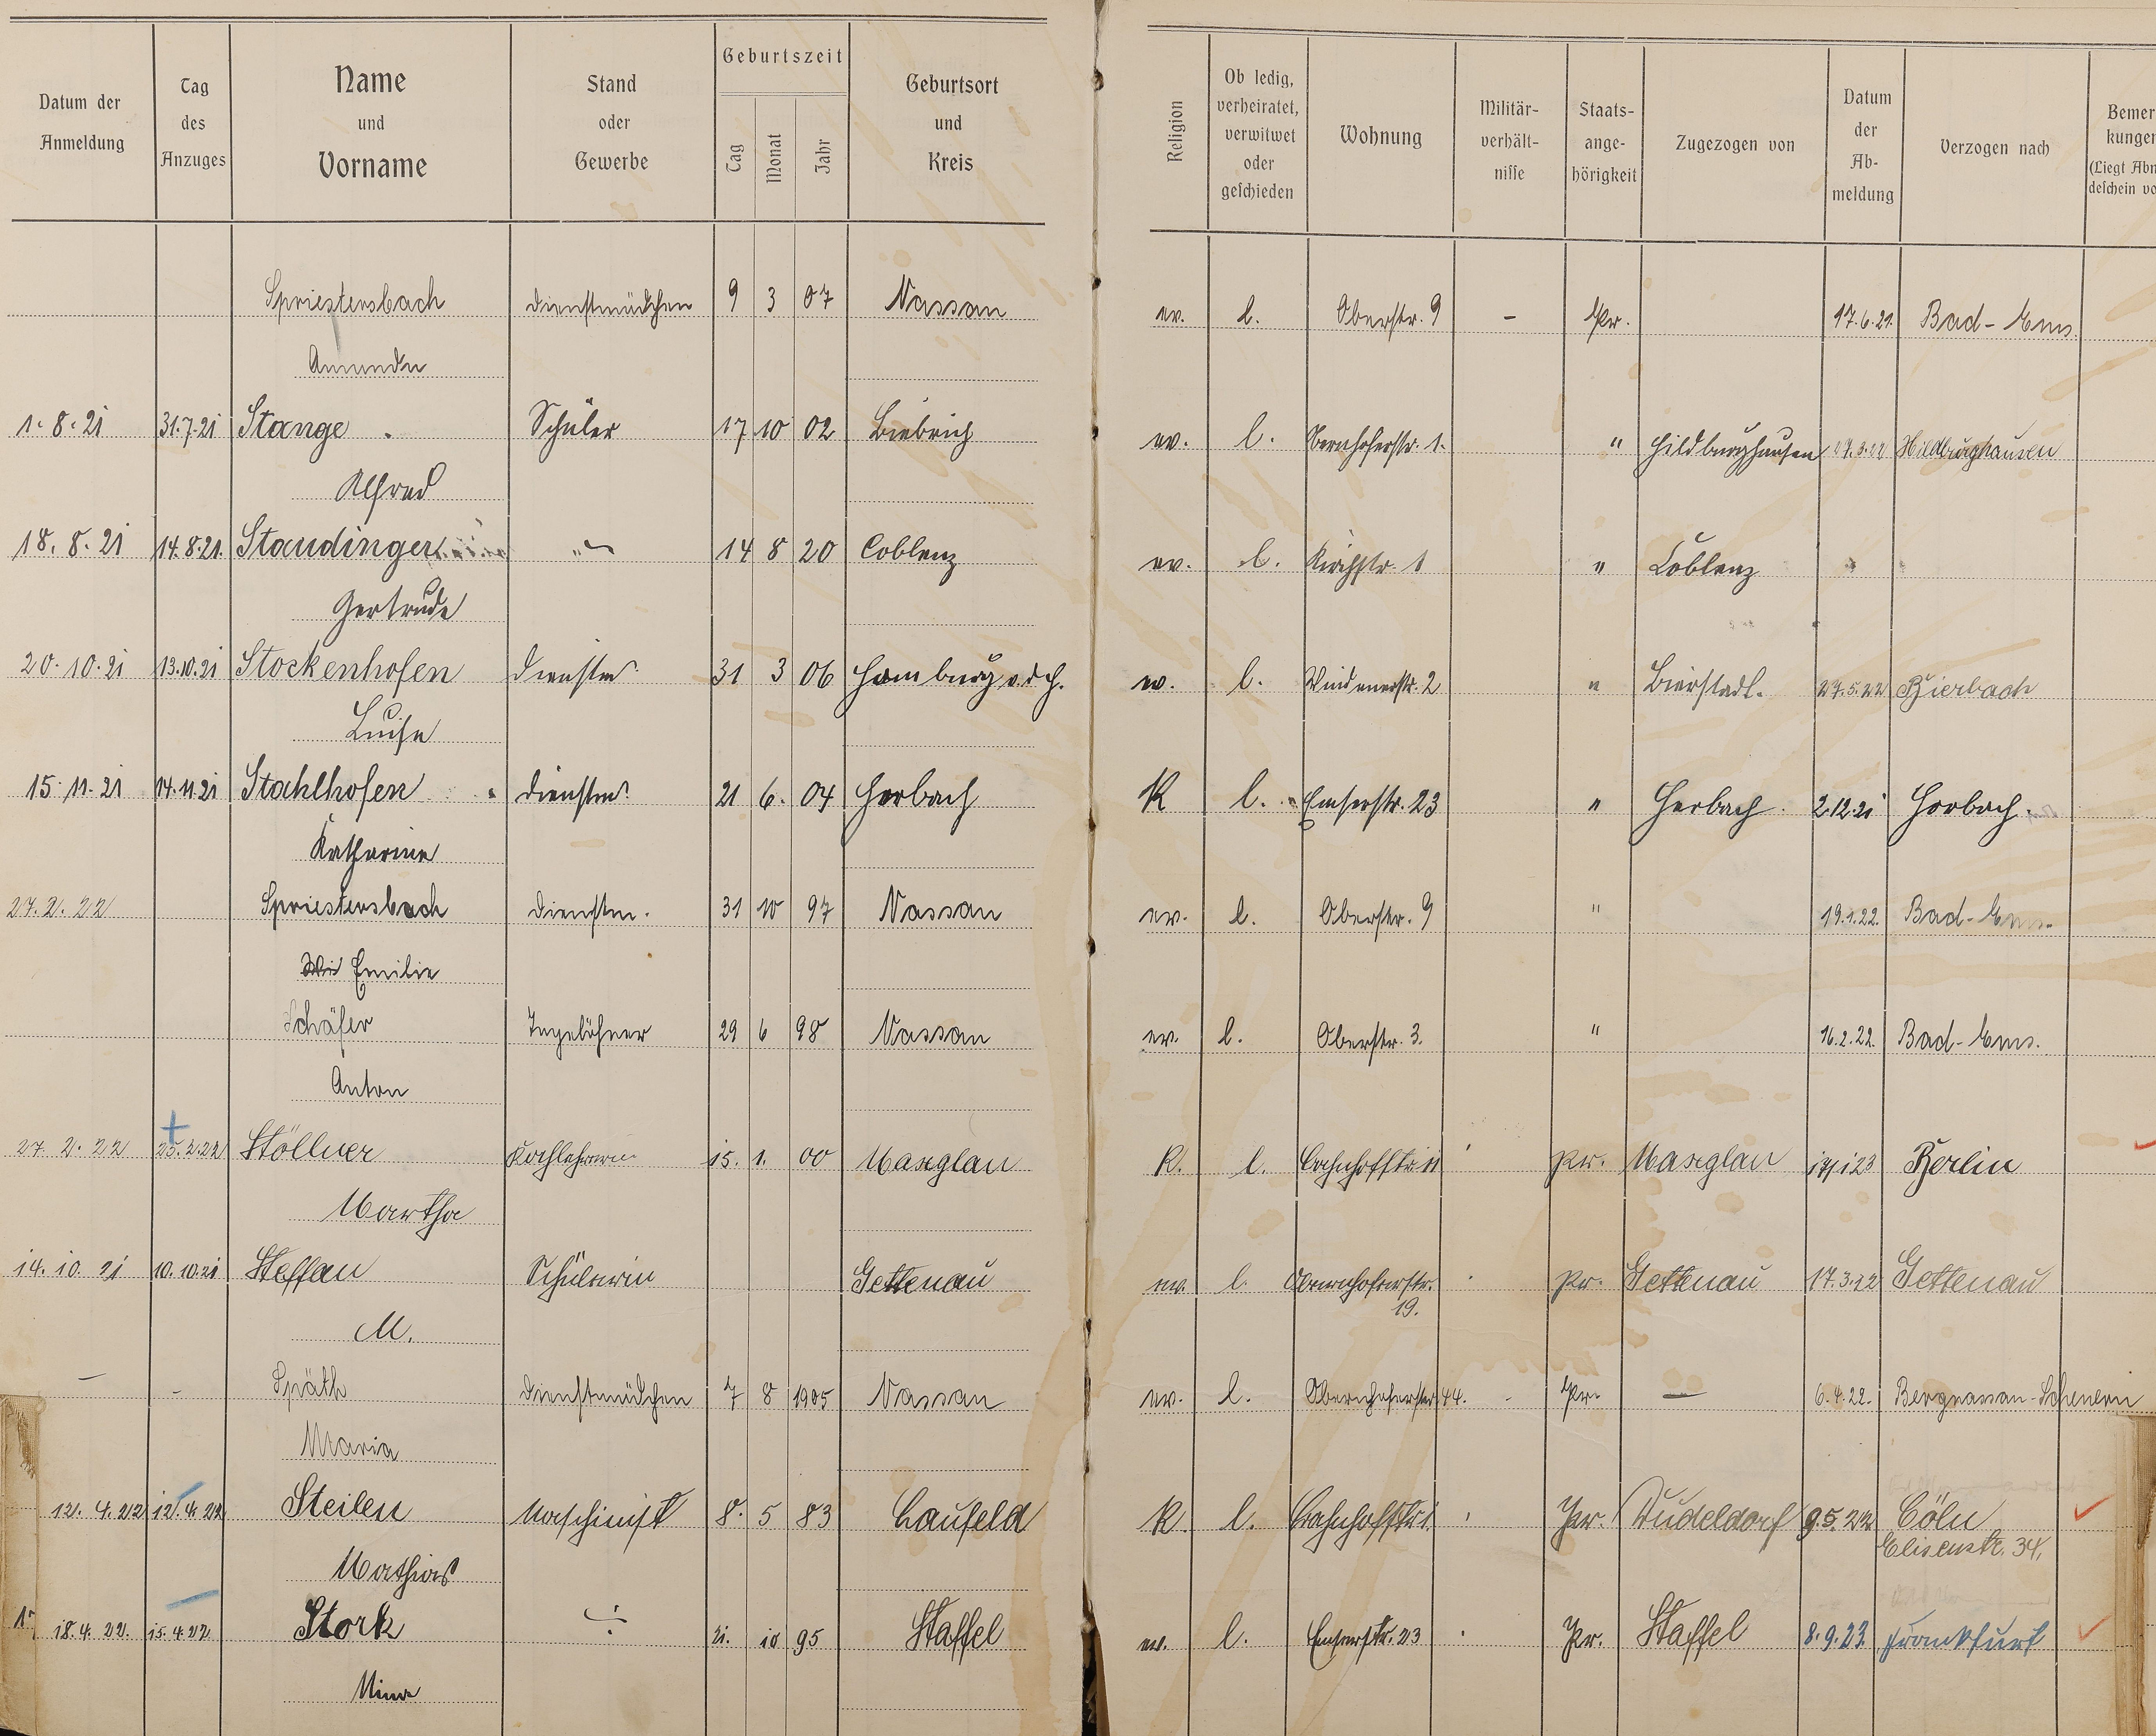 Datum der Anmeldung | Tag des Anzuges | Name und Vorname | Stand oder Gewerbe | Geburtszeit | Tag | Monat | Jahr | Geburtsort und Kreis | Religion | Ob ledig, verheiratet, verwitwet oder geschieden | Wohnung | Militär-verhält-nisse | Staats-ange-hörigkeit | Zugezogen von | Datum der Ab-meldung | Verzogen nach | Bemer kungen (Liegt Abm deschein vo
Spriestersbach | Dienstmädchen | 9 | 3 | 07 | Nassau | ev. | l. | Oberstr. 9 | - | Pr. | 17.6.21. | Bad-Ems.
Amanda
1.8.21 | 31.7.21 | Stange | Schüler | 17 | 10 | 02 | Biebrich | ev. | l. | 1. | " | Hildburghausen | 27.3.22 | Hildburghausen
Alfred
18.8.21 | 14.8.21. | Staudinger | " | 14 | 8 | 20 | Coblenz | ev. | l. | Kirchstr. 1 | " | Coblenz
Gertrude
20.10.21 | 13.10.21 | Stockenhofen | Dienstm. | 31 | 3 | 06 | Homburg v.d.H. | ev. | l. | Windenerstr. 2 | " | Bierstadt. | 27.5.22 | Bierbach
Luise
15.11.21 | 14.11.21 | Stahlhofen | Dienstm. | 21 | 6. | 04 | Horbach | K | l. | Emserstr. 23 | " | Horbach. | 2.12.21 | Horbach.
Katharina
27.2.22 | Spriestersbach | Dienstm. | 31 | 10 | 97 | Nassau | ev. | l. | Oberstr. 9 | " | 19.1.22. | Bad-Ems.
Emilie
Schäfer | Tagelöhner | 29 | 6 | 98 | Nassau | ev. | l. | Oberstr. 3. | " | 16.2.22. | Bad-Ems.
Anton
27.2.22 | 25.2.22 | Stöllner | Kochlehrerin | 15. | 1. | 00 | Maxglan | K. | l. | Bahnhofstr. 11 | Pr. | Maxglan | Berlin
Martha
14.10.21 | 10.10.21 | Steffan | Schülerin | Gettenau | ev. | l. | Obernhoferstr. | Pr. | Gettenau | 17.3.22 | Gettenau
19.
M.
— | - | Späth | Dienstmädchen | 7 | 8 | 1905 | Nassau | ev. | l. | Obernhoferstr. 44. | - | Pr. | — | 6.4.22. | Bergnassau-Scheuern
Maria
12.4.22 | 12.4.22 | Steilen | Maschinist | 8. | 5 | 83 | Laufeld | K. | l. | Bahnhofstr. 1. | Pr. | Dudeldorf | 9.5.22 | Cöln
Elisenstr. 34.
Mathias
18.4.22. | 15.4.22 | Stork | ÷ | 21. | 10 | 95 | Staffel | ev. | l. | Emserstr. 23 | Pr. | Staffel | 8.9.23 | Frankfurt
Minna